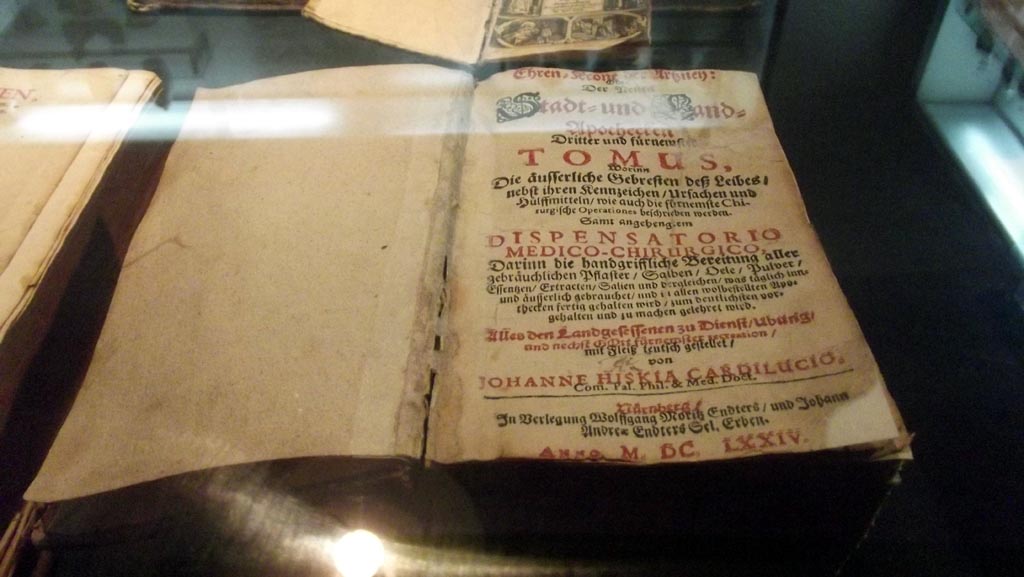 EN,
Ehren-Krone der Artzney:
Der Neuen
Stadt- und Land-
Apothecken
Dritter und fürnemster
TOMUS,
Worinn
Die äusserliche Gebresten deß Leibes/
nebst ihren Kennzeichen/ Ursachen und
Hülffmitteln/ wie auch die fürnemste Chi-
rurgische Operationes beschrieben werden.
Samt angehengtem
DISPENSATORIO
MEDICO-CHIRURGICO,
Darinn die handgriffliche Bereitung aller
gebräuchlichen Pflaster/ Salben/ Oele/ Pulver/
Essentzen/ Extracten/ Salien und dergleichen/ was täglich inn-
und äusserlich gebrauchet/ und in allen wolbestellten Apo-
thecken fertig gehalten wird/ zum deutlichsten vor-
gehalten und zu machen gelehret wird.
Alles den Landgesessenen zu Dienst/
und nechst
mit Fleiß teutsch gestellet/
von
JOHANNE HISKIA CARDILUCIO,
Com. Pal. Phil. & Med. Doct.
Nürnberg/
In Verlegung Wolffgang Moritz Endters/ und Johann
Andreæ Endters Sel. Erben.
Anno M. DC. LXXIV.